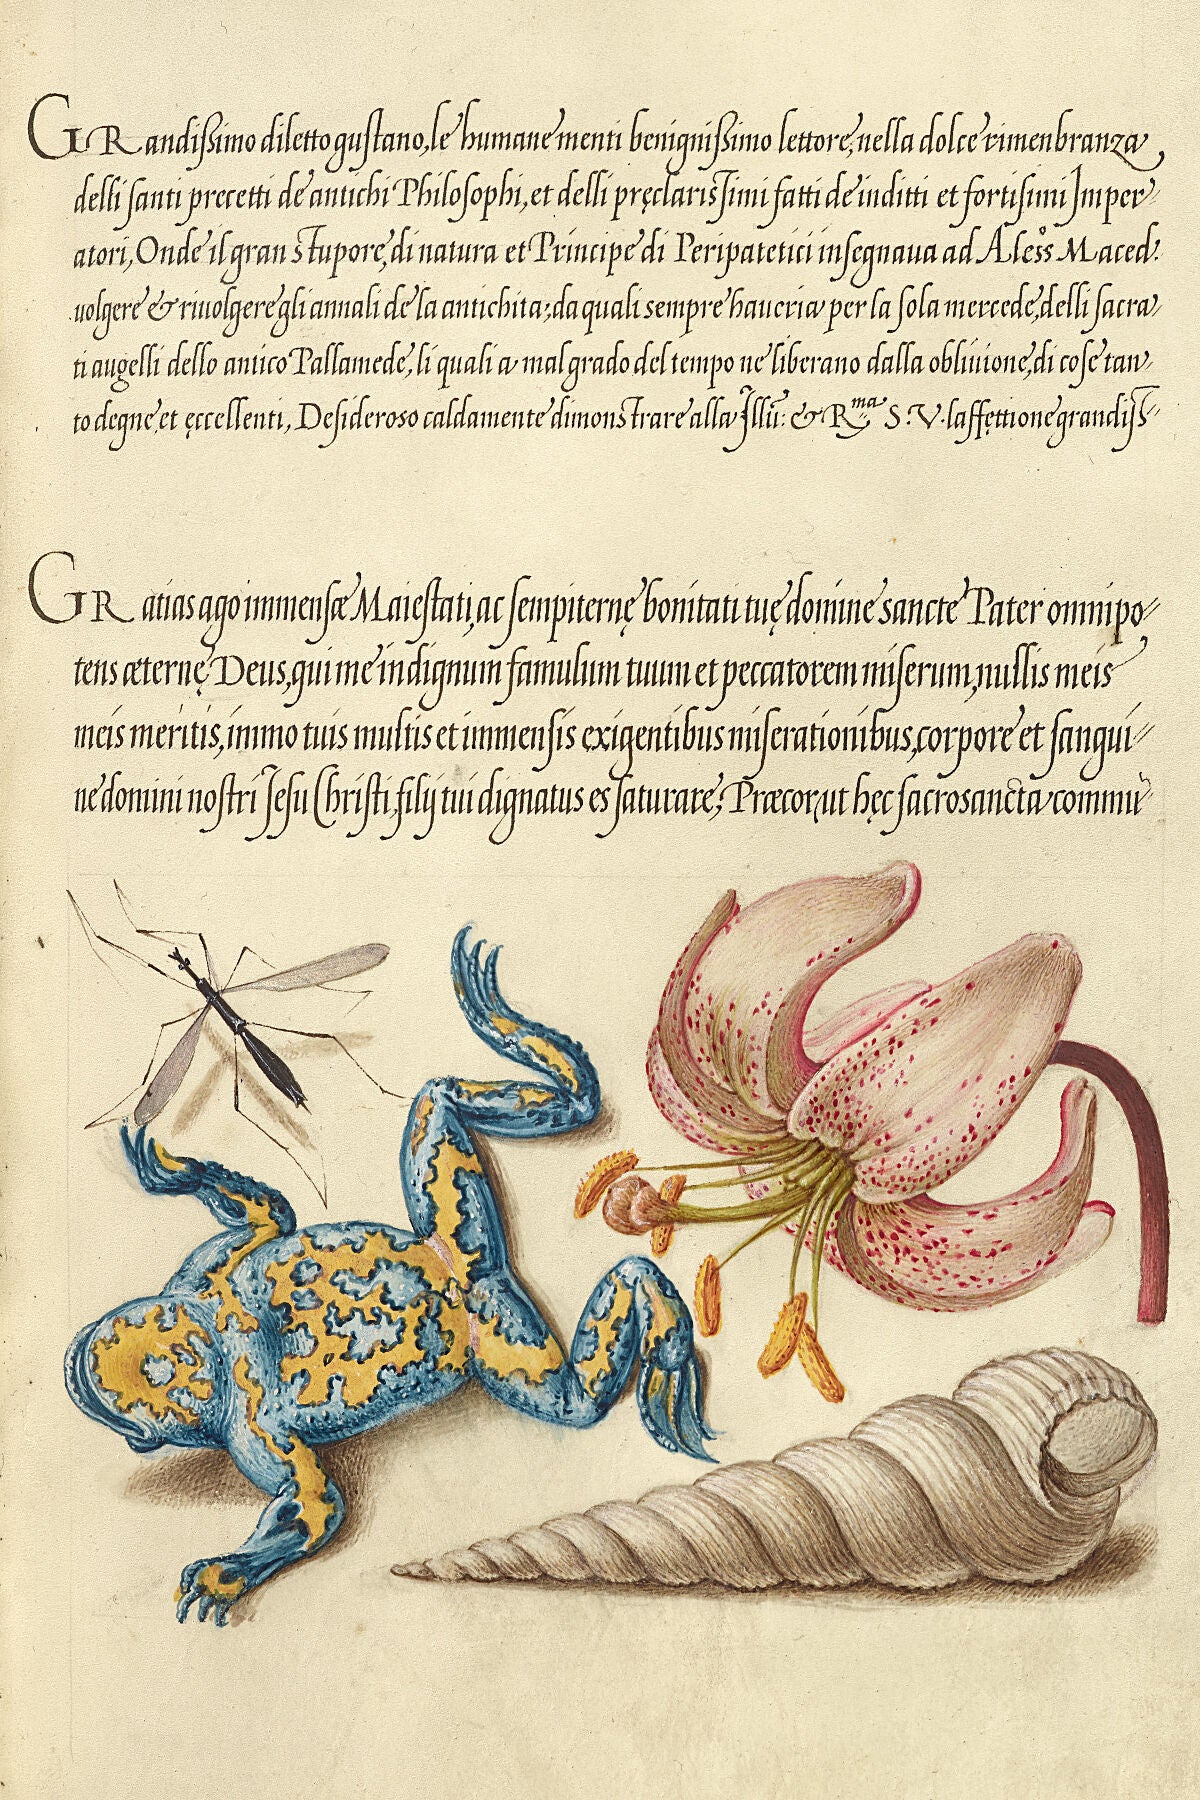 GRandissimo diletto gustano, le humane menti benignissimo lettore, nella dolce rimenbranza,
delli santi precetti de antichi Philosophi, et delli pręclarissimi fatti de inditti et fortisimi Imper-
atori, Onde il gran stupore, di natura et Principe di Peripatetici insegnaua ad Aless Maced:
uolgere & riuolgere gli annali de la antichita; da quali sempre haueria per la sola mercede, delli sacra-
ti augelli dello antico Pallamede, li quali a mal grado del tempo ne liberano dalla obliuione, di cose tan-
to degne, et ęccellenti, Desideroso caldamente dimonstrare alla Illū: & Rma S. V. laffęttione grandiss-
GRatias ago immensæ Maiestati, ac sempiternę bonitati tuę domine sancte Pater omnipo-
tens æternę Deus, qui me indignum famulum tuum et peccatorem miserum, nullis meis
meis meritis, immo tuis multis et immensis exigentibus miserationibus, corpore et sangui-
ne domini nostri Jesu Christi, filij tui dignatus es saturare; Præcor, ut hęc sacrosancta commū-